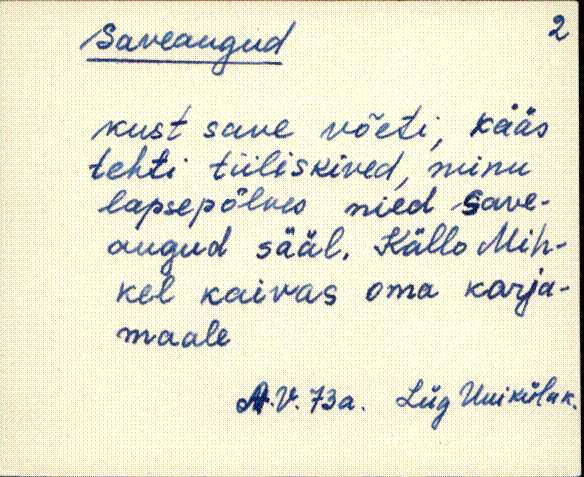 2
Saveaugud
kust save võeti, kääs
tehti tiiliskived, minu
lapsepõlves nied save-
augud sääl. Källo Mih-
kel kaivas oma karja-
maale
A.V. 73a. Lüg Uuiküla k.